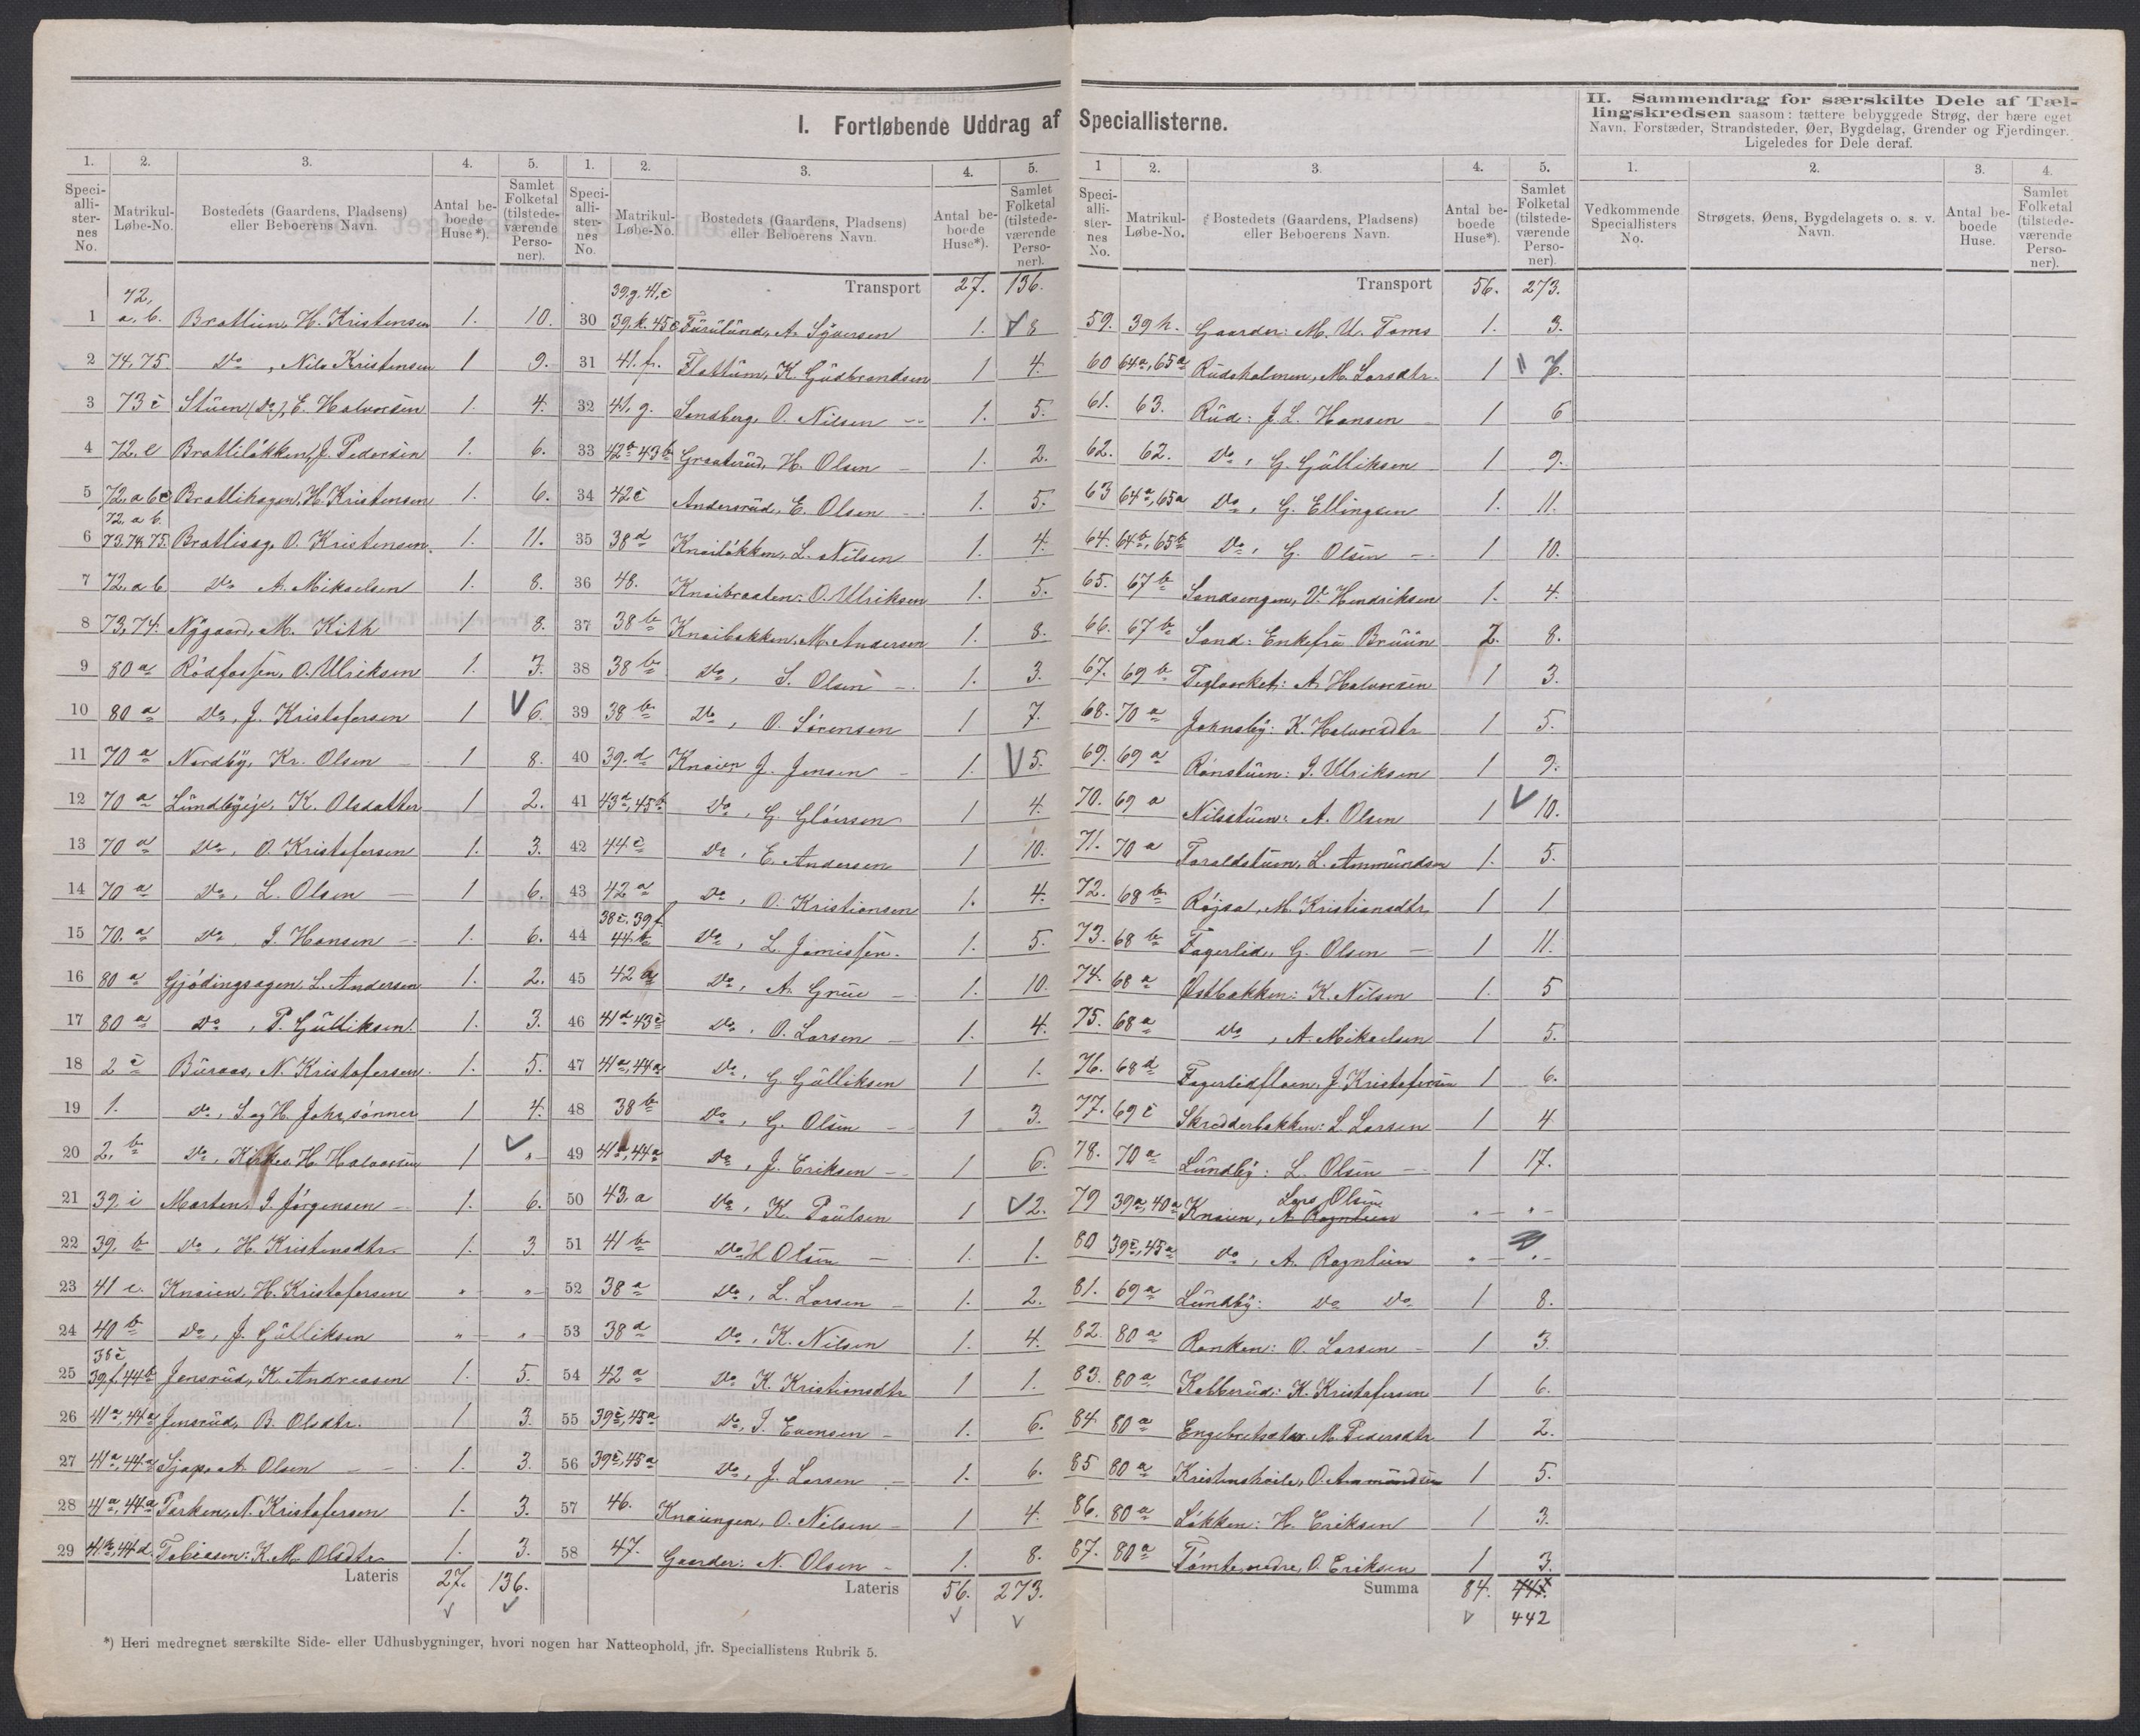 I. Fortløbende Uddrag af Speciallisterne.
II. Sammendrag for særskilte Dele af Tæl-
lingskredsen saasom: tættere bebyggede Strøg, der bære eget
Navn, Forstæder, Strandsteder, Øer, Bygdelag, Grender og Fjerdinger.
Ligeledes for Dele deraf.
1. 2. 3. 4. 5.
Speci-alli-ster-nes No. Matrikul-Løbe-No. Bostedets (Gaardens, Pladsens) eller Beboerens Navn. Antal be-boede Huse*). Samlet Folketal (tilstede-værende Perso-ner).
72.
1 a. b. Bratlien, H. Kristensen 1. 10.
2 74, 75. Do, Nils Kristensen 1 9.
3 73 c Stuen (Do), E. Halvorsen 1. 4.
4 72. e Bratliløkken, J. Pedersen 1. 6.
5 72. a b c Bratlihagen, H. Kristensen 1. 6.
72. a b.
6 73. 74. 75. Bratlisag, O. Kristensen. 1. 11.
7 72. a b Do A. Mikaelsen 1. 8.
8 73, 74. Nygaard, M. Kith 1 8.
9 80 a Rødfossen, O. Ulriksen 1. 3.
10 80 a Do, J. Kristofersen 1 6.
11 70 a Nordby, Kr. Olsen 1 8.
12 70 a Lundbyeje, K. Olsdatter 1 2.
13 70 a Do, O. Kristofersen 1. 3.
14 70 a Do, L. Olsen 1 6.
15 70. a Do, I. Hansen 1. 6.
16 80 a Gjødingsagen, L. Andersen 1. 2.
17 80 a Do, P. Gulliksen. 1. 3.
18 2 c Buraas, N. Kristofersen 1. 5.
19 1. Do, S. og H. Johs. sønner 1 4.
20 2. b Do, H. Halvorsen 1 "
21 39. i Morten, I. Jørgensen 1. 6.
22 39. b Do, H. Kristensdtr 1. 3.
23 41 e. Knaien, H. Kristofersen " "
24 40 b Do, J. Gulliksen " "
38 c
25 39 f, 44 b Jensrud, K. Andreasen 1. 5.
26 41 a, 44 a Jensrud, B. Olsdtr. 1 3.
27 41 a, 44 a Sjap, A. Olsen 1. 3.
28 41 a, 44 a Parken, N. Kristofersen 1. 3.
29 41 b, 44 d. Tobiasen: K. M. Olsdtr 1. 3.
Lateris 27. 136.
1. 2. 3. 4. 5.
Speci-alli-ster-nes No. Matrikul-Løbe-No. Bostedets (Gaardens, Pladsens) eller Beboerens Navn. Antal be-boede Huse*). Samlet Folketal (tilstede-værende Perso-ner).
Transport 27. 136.
39. g. 41. c
30 39. k. 45 c Furulund, A. Syversen 1. 8
31 41. f. Flattum, K. Gudbrandsen 1 4.
32 41. g. Sandberg, O. Nilsen 1. 5.
33 42 b 43 b Graaterud, H. Olsen 1. 2.
34 42 c Andersrud, E. Olsen 1. 5.
35 38 d Knailøkken, L. Nilsen 1. 4.
36 48. Knaibraaten: O. Ulriksen 1. 5.
37 38 b Knaibakken, M. Andersen 1. 8.
38 38 b Do, S. Olsen 1. 3.
39 38 b Do, O. Sørensen 1 7.
40 39. d Knaien J. Jensen 1. 5.
41 43 d, 45 b Do, G. Gløersen 1 4.
42 44 c Do, E. Andersen 1 10.
43 42 a Do, O. Kristiansen 1. 4.
38 c. 39 f
44 44 b Do, L. Jamissen. 1. 5.
45 42 a Do, A. Grue 1. 10.
46 41 d 43 c Do, O. Larsen 1. 4.
47 41 a, 44 a Do, G Gulliksen 1 1.
48 38 b Do, G. Olsen 1 3.
49 41 a, 44 a Do, J. Eriksen 1 6.
50 43. a Do, K. Paulsen 1 2.
51 41 b Do H Olsen 1. 1.
52 38 a Do, L. Larsen 1. 2.
53 38 d Do, K. Nilsen 1. 4.
54 42 a Do K. Kristiansdtr 1 1.
55 39 c, 45 a Do, I. Evensen 1. 6.
56 39 c, 45 a Do, J. Larsen 1. 6.
57 46. Knaiengen, O. Nilsen 1 4.
58 47. Gaarder: N. Olsen 1. 8.
Lateris 56. 273.
1 2. 3. 4. 5.
Speci-alli-ster-nes No. Matrikul-Løbe-No. Bostedets (Gaardens, Pladsens) eller Beboerens Navn. Antal be-boede Huse*). Samlet Folketal (tilstede-værende Perso-ner).
Transport 56. 273.
59. 39 h. Gaarder: M. U. Toms 1. 3.
60 64 a, 65 a Rudsholmen, M. Larsdtr. 1 7.
61. 63. Rud: J. L. Hansen 1 6
62. 62. Do, G. Gulliksen 1 9.
63 64 a, 65 a Do, G. Ellingsen 1. 11.
64. 64 b, 65 b Do, G. Olsen 1 10.
65. 67 b Sandsengen, V. Hendriksen 1. 4.
66. 67 b Sand: Enkefru Bruun 2. 8.
67. 69 b Teglværket: A. Halvorsen 1 3.
68. 70 a Johnsby: K. Halvorsdtr 1 5.
69. 69 a Rønstuen: I. Ulriksen 1 9.
70. 69 a Nilsstuen: A. Olsen 1 10.
71. 70 a Taraldstuen, L. Ammundsen 1. 5.
72. 68 b Røjsa, M. Kristiansdtr. 1 1
73. 68 b Fagerlid, G. Olsen 1 11.
74. 68 a Østbakken: K. Nilsen 1. 5
75. 68 a Do, A. Mikaelsen 1 5.
76. 68 d Fagerlidfloen, J. Kristofersen 1 6.
77. 69 c Skredderbakken: L. Larsen 1 4
78. 70 a Lundby: L. Olsen 1 17.
Lars Olsen
79 39 a, 40 a Knaien, A. Rognlien " "
80 39 c, 45 a Do, A. Rognlien " "
81. 69 a Lundby: Do Do 1 8.
82. 80 a Ranken: O. Larsen 1 3.
83. 80 a Kabberud: K. Kristofersen 1 6.
84 80 a M. Pedersdtr 1 2.
85 80 a O. Ammundsen 1 5.
86. 80 a Løkken: H. Eriksen 1 3.
87. 80 a Tømte, nedre, O. Eriksen 1 3.
Summa 84.
442
1. 2. 3. 4.
Vedkommende Speciallisters No. Strøgets, Øens, Bygdelagets o. s. v. Navn. Antal be-boede Huse. Samlet Folketal (tilstede-værende Perso-ner).
*) Heri medregnet særskilte Side- eller Udhusbygninger, hvori nogen har Natteophold, jfr. Speciallistens Rubrik 5.